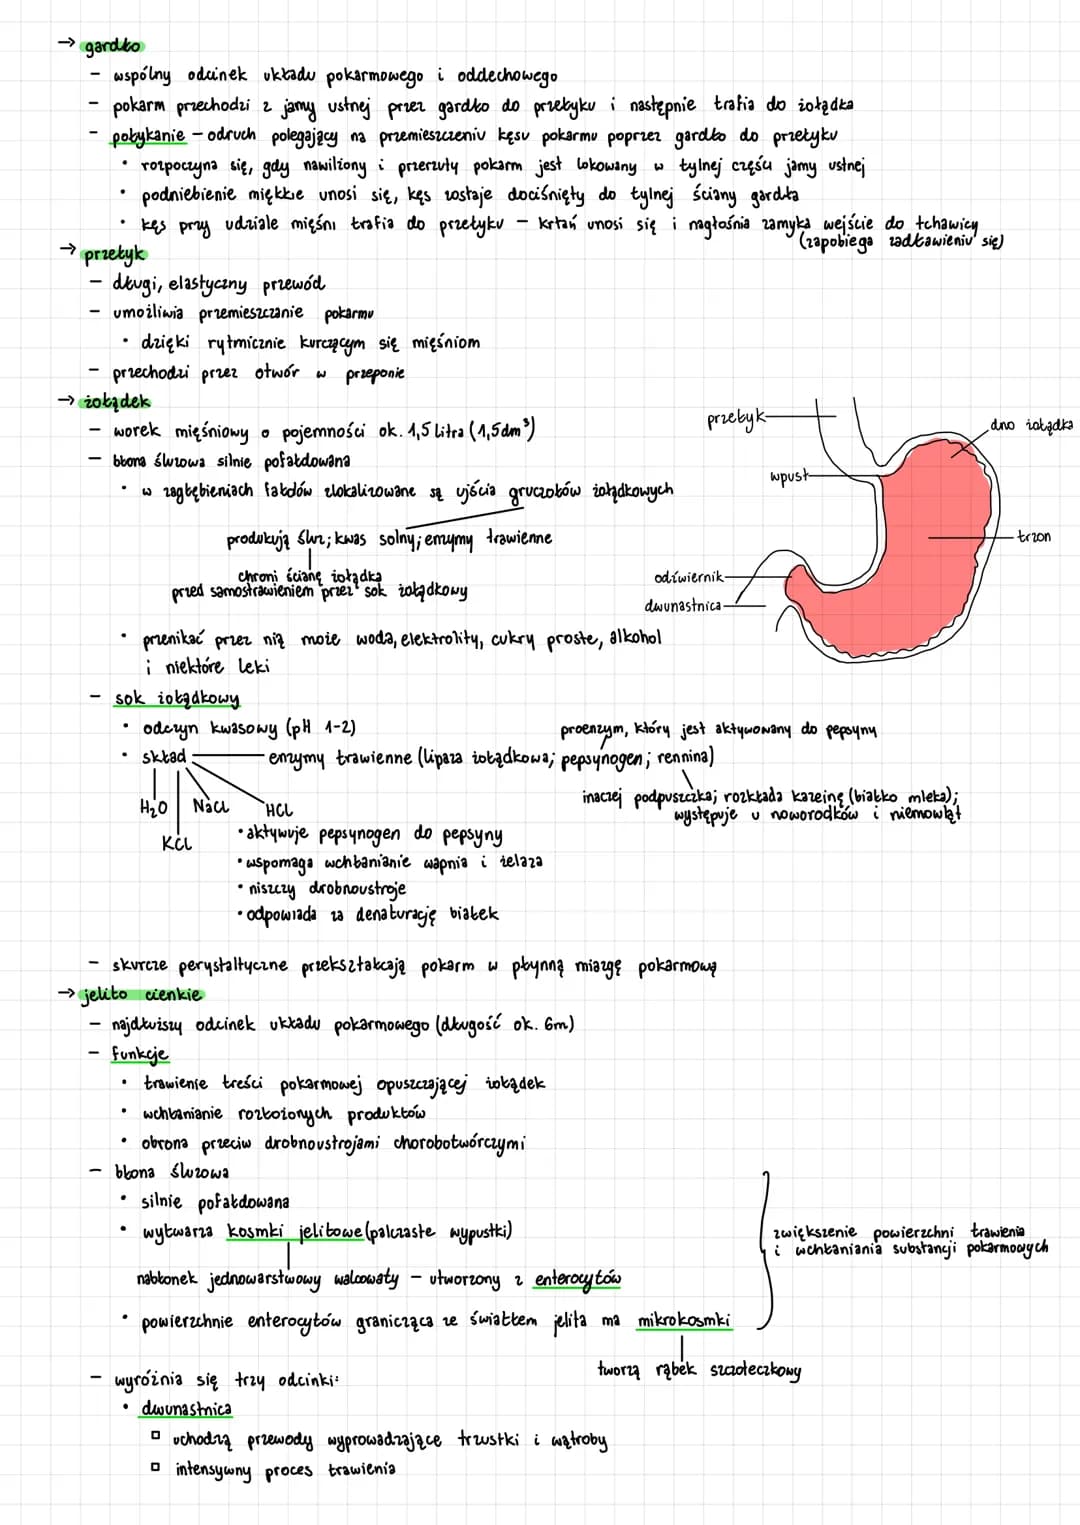 → gardło
- wspólny odcinek układu pokarmowego i oddechowego
- pokarm przechodzi z jamy ustnej przez gardło do przełyku i następnie trafia do żołądka
- połykanie – odruch polegający na przemieszczeniu kęsu pokarmu poprzez gardło do przełyku
• rozpoczyna się, gdy nawilżony i przeżuty pokarm jest lokowany w tylnej części jamy ustnej
• podniebienie miękkie unosi się, kęs zostaje dociśnięty do tylnej ściany gardła
• kęs przy udziale mięśni trafia do przełyku – krtań unosi się i nagłośnia zamyka wejście do tchawicy
(zapobiega zadławieniu się)
→ przełyk
- długi, elastyczny przewód
- umożliwia przemieszczanie pokarmu
• dzięki rytmicznie kurczącym się mięśniom
- przechodzi przez otwór w przeponie
→ żołądek
- worek mięśniowy o pojemności ok. 1,5 litra (1,5dm³)
- błona śluzowa silnie pofałdowana
• w zagłębieniach fałdów zlokalizowane są ujścia gruczołów żołądkowych
produkują śluz; kwas solny; enzymy trawienne
chroni ścianę żołądka
przed samostrawieniem przez sok żołądkowy
przełyk
dno żołądka
wpust
trzon
odźwiernik
dwunastnica
• przenikać przez nią może woda, elektrolity, cukry proste, alkohol
i niektóre leki
- sok żołądkowy
• odczyn kwasowy (pH 1-2)
proenzym, który jest aktywowany do pepsyny
• skład
enzymy trawienne (lipaza żołądkowa; pepsynogen; rennina)
inaczej podpuszczka; rozkłada kazeinę (białko mleka);
występuje u noworodków i niemowląt
H₂O
NaCl
HCl
KCl
• aktywuje pepsynogen do pepsyny
• wspomaga wchłanianie wapnia i żelaza
• niszczy drobnoustroje
• odpowiada za denaturację białek
- skurcze perystaltyczne przekształcają pokarm w płynną miazgę pokarmową
→ jelito cienkie
- najdłuższy odcinek układu pokarmowego (długość ok. 6m)
- funkcje
• trawienie treści pokarmowej opuszczającej żołądek
• wchłanianie rozłożonych produktów
• obrona przeciw drobnoustrojami chorobotwórczymi
- błona śluzowa
• silnie pofałdowana
• wytwarza kosmki jelitowe (palczaste wypustki)
zwiększenie powierzchni trawienia
i wchłaniania substancji pokarmowych
nabłonek jednowarstwowy walcowaty – utworzony z enterocytów
• powierzchnie enterocytów granicząca ze światłem jelita ma mikrokosmki
tworzą rąbek szczoteczkowy
- wyróżnia się trzy odcinki:
• dwunastnica
▫ uchodzą przewody wyprowadzające trzustki i wątroby
▫ intensywny proces trawienia